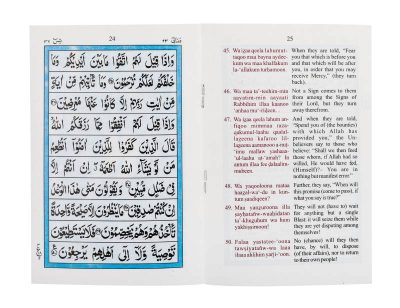 24
وَاِذَا قِيْلَ لَهُمُ اتَّقُوْا مَا بَيْنَ اَيْدِيْكُمْ وَمَا
خَلْفَكُمْ لَعَلَّكُمْ تُرْحَمُوْنَ وَمَا تَاْتِيْهِمْ مِّنْ اٰيَةٍ
مِّنْ اٰيٰتِ رَبِّهِمْ اِلَّا كَانُوْا عَنْهَا مُعْرِضِيْنَ
وَاِذَا قِيْلَ لَهُمْ اَنْفِقُوْا مِمَّا رَزَقَكُمُ اللّٰهُ
قَالَ الَّذِيْنَ كَفَرُوْا لِلَّذِيْنَ اٰمَنُوْۤا اَنُطْعِمُ
مَنْ لَّوْ يَشَآءُ اللّٰهُ اَطْعَمَهٗۤ اِنْ اَنْتُمْ اِلَّا
فِيْ ضَلٰلٍ مُّبِيْنٍ وَيَقُوْلُوْنَ مَتٰى هٰذَا الْوَعْدُ
اِنْ كُنْتُمْ صٰدِقِيْنَ مَا يَنْظُرُوْنَ اِلَّا صَيْحَةً وَّاحِدَةً
تَاْخُذُهُمْ وَهُمْ يَخِصِّمُوْنَ فَلَا يَسْتَطِيْعُوْنَ
تَوْصِيَةً وَّلَاۤ اِلٰۤى اَهْلِهِمْ يَرْجِعُوْنَ
25
45. Wa izaa qeela lahumut-
taqoo maa bayna aydee-
kum wa maa khalfakum
la-'allakum turhamoon.
When they are told, "Fear
you that which is before you
and that which will be after
you, in order that you may
receive Mercy," (they turn
back).
46. Wa maa ta'-teehim-min
aayatim-min aayaati
Rabbihim illaa kaanoo
'anhaa mu'-rideen.
Not a Sign comes to them
from among the Signs of
their Lord, but they turn
away therefrom.
47. Wa izaa qeela lahum an-
fiqoo mimmaa raza-
qakumul-laahu qaalal-
lazeena kafaroo lil-
lazeena aamanooo a-nuṭ-
'imu mallaw yashaaa-
'ul-laahu aṭ-'amah? In
antum illaa fee ḍalaalim-
mubeen.
And when they are told,
"Spend you of (the bounties)
with which Allah has
provided you," the Un-
believers say to those who
believe: "Shall we then feed
those whom, if Allah had so
willed, He would have fed,
(Himself)?- You are in
nothing but manifest error!"
48. Wa yaqooloona mataa
haazal-wa'-du in kun-
tum ṣaadiqeen?
Further, they say, "When will
this promise (come to pass), if
what you say is true?"
49. Maa yanẓuroona illaa
ṣayḥataw-waaḥidatan
ta'-khuzuhum wa hum
yakhiṣṣimoon!
They will not (have to) wait
for anything but a single
Blast: it will seize them while
they are yet disputing among
themselves!
50. Falaa yastaṭee-'oona
tawṣiyataw-wa laaa
ilaaa ahlihim yarji-'oon.
No (chance) will they then
have, by will, to dispose
(of their affairs), nor to return
to their own people!